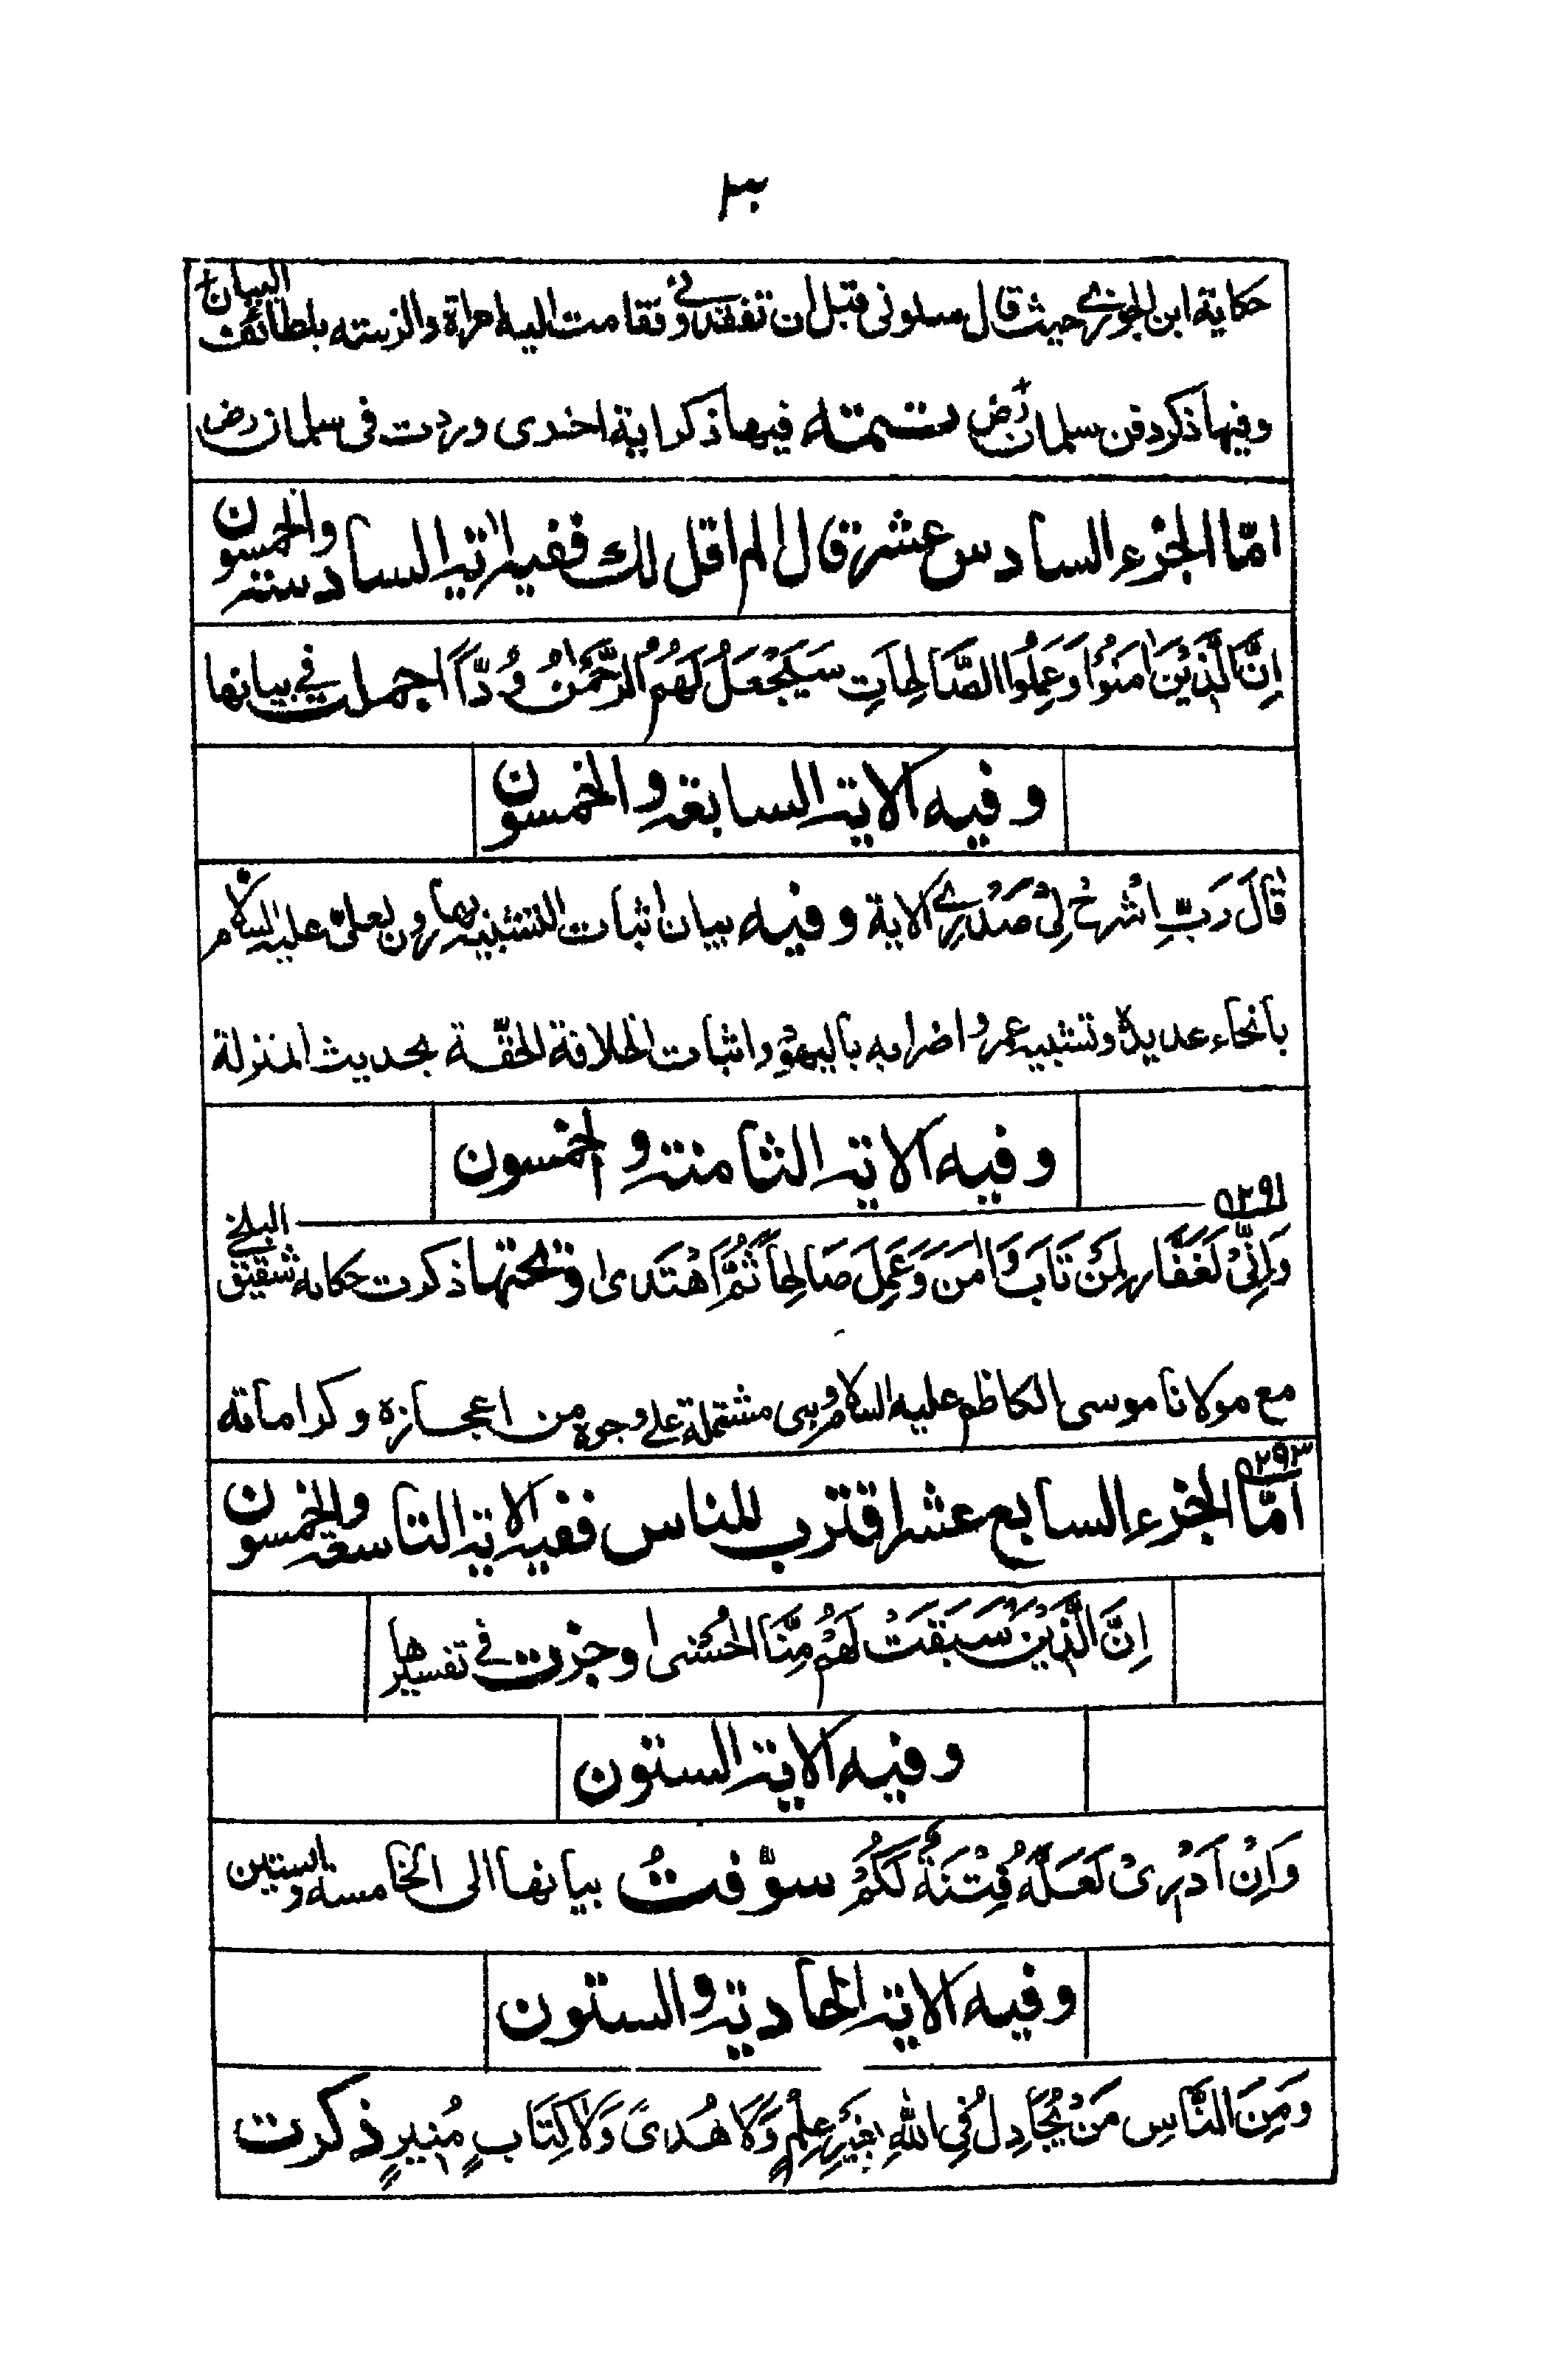 حكاية ابن الجوزي حيث قال سلوني قبل ان تفقدوني فقامت اليه امراة والزمته بلطائف البيان
وفيها ذكر دفن سلمان رض تتمة فيها ذكر اية اخرى وردت في سلمان رض
امّا الجزء السادس عشر قال الم اقل لك ففيه الاية السادسة والخمسون
اِنَّ الَّذِيْنَ اٰمَنُوْا وَعَمِلُوا الصَّالِحَاتِ سَيَجْعَلُ لَهُمُ الرَّحْمٰنُ وُدًّا اجملت في بيانها
وفيه الاية السابعة والخمسون
قَالَ رَبِّ اشْرَحْ لِيْ صَدْرِيْ الاية وفيه بيان اثبات التشبيه بهارون لعلىّ عليه السلام
بانحاء عديدة وتشبيه عمر واضرابه باليهود واثبات الخلافة الحقّة بحديث المنزلة
وفيه الاية الثامنة والخمسون
٥٢٩١
وَاِنِّيْ لَغَفَّار لِمَنْ تَابَ وَاٰمَنَ وَعَمِلَ صَالِحاً ثُمَّ اهْتَدَىٰ وتحتها ذكرت حكاية شقيق البلخي
مع مولانا موسى الكاظم عليه السلام وهي مشتملة على وجوه من اعجازه وكراماته
امّا الجزء السابع عشر اقترب للناس ففيه الاية التاسعة والخمسون
اِنَّ الَّذِيْنَ سَبَقَتْ لَهُمْ مِنَّا الْحُسْنىٰ اوجزت في تفسيرها
وفيه الاية الستون
وَاِنْ اَدْرِىْ لَعَلَّهٗ فِتْنَةٌ لَكُمْ سوّفتُ بيانها الى الخامسة والستين
وفيه الاية الحادية والستون
وَمِنَ النَّاسِ مَنْ يُجَادِلُ فِي اللّٰهِ بِغَيْرِ عِلْمٍ وَّلَا هُدىً وَلَا كِتَابٍ مُنِيرٍ ذكرت